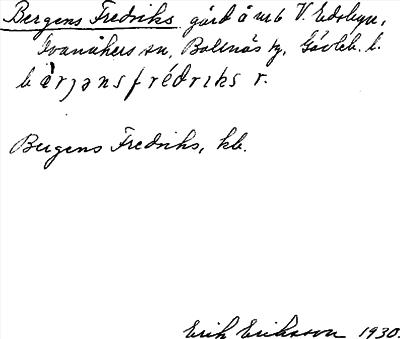 Bergens Fredriks gård å nr 6 V. Edsbyn,
Ovanåkers sn, Bollnäs tg, Gävleb. l.
bærjəns frédriks r.
Bergens Fredriks, kb.
Erik Eriksson 1930.